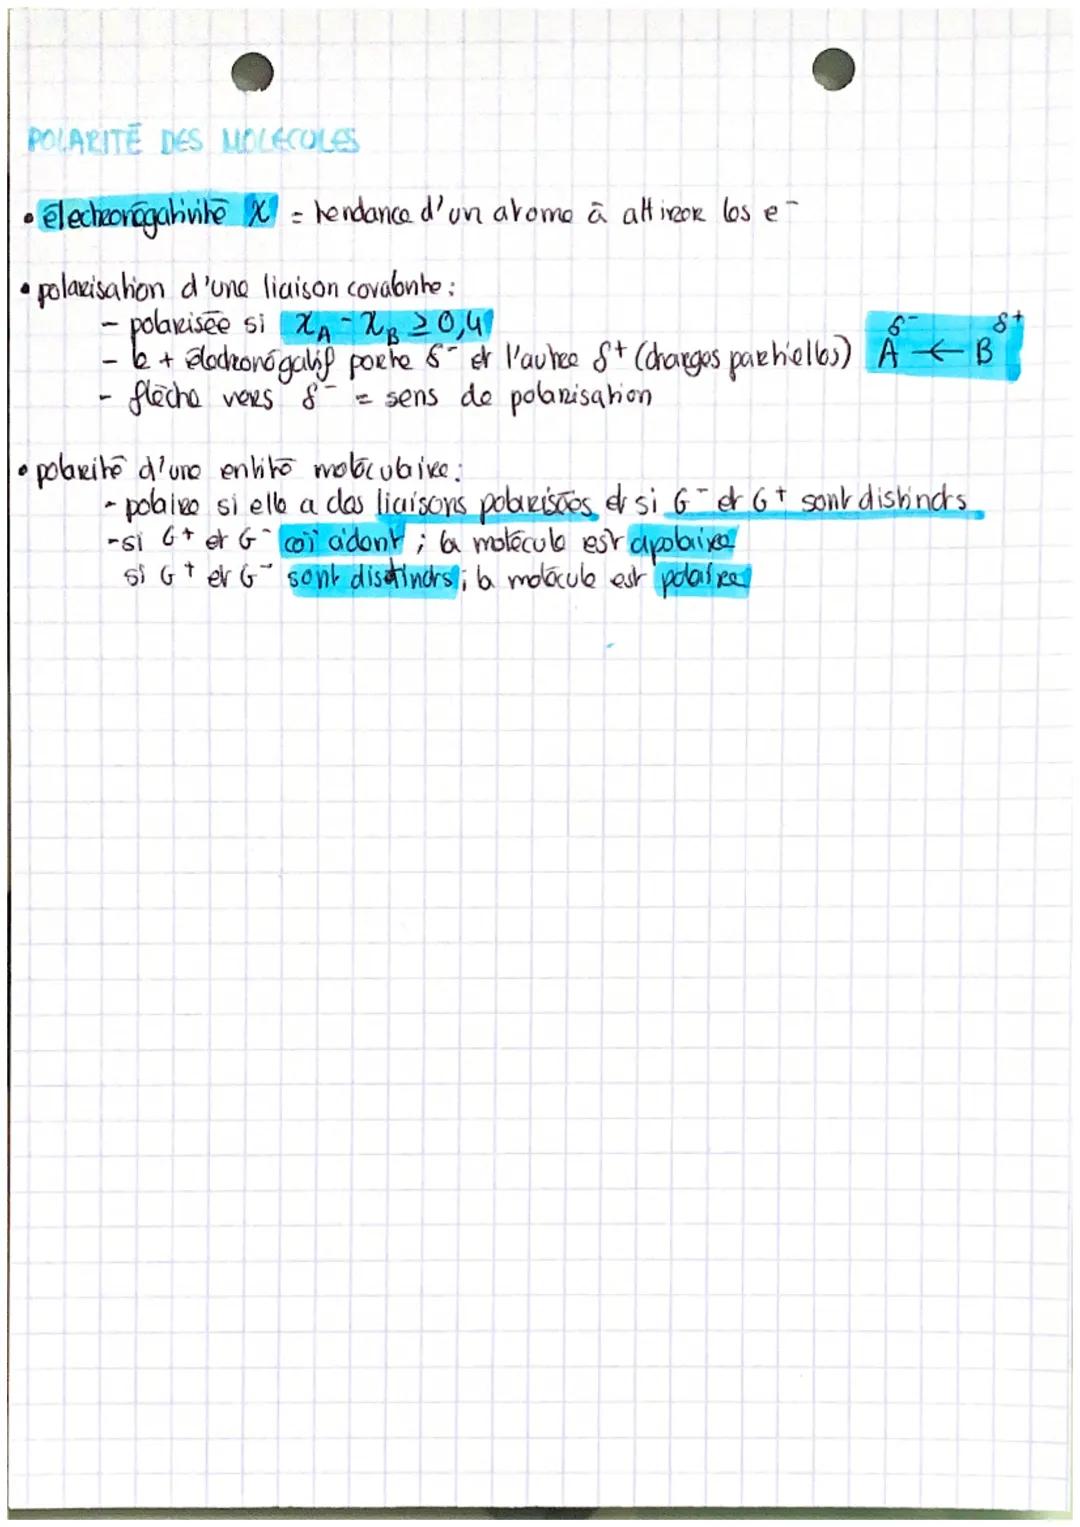 POLARITÉ DES MOLÉCULES
• électronégativité χ = tendance d'un atome à attirer les e⁻
• polarisation d'une liaison covalente :
- polarisée si χA - χB ≥ 0,4
- le + électronégatif porte δ⁻ et l'autre δ⁺ (charges partielles)
δ⁻ δ⁺
A ← B
- flèche vers δ⁻ = sens de polarisation
• polarité d'une entité moléculaire :
- polaire si elle a des liaisons polarisées et si G⁻ et G⁺ sont distincts
- si G⁺ et G⁻ coïncident ; la molécule est apolaire
si G⁺ et G⁻ sont distincts ; la molécule est polaire